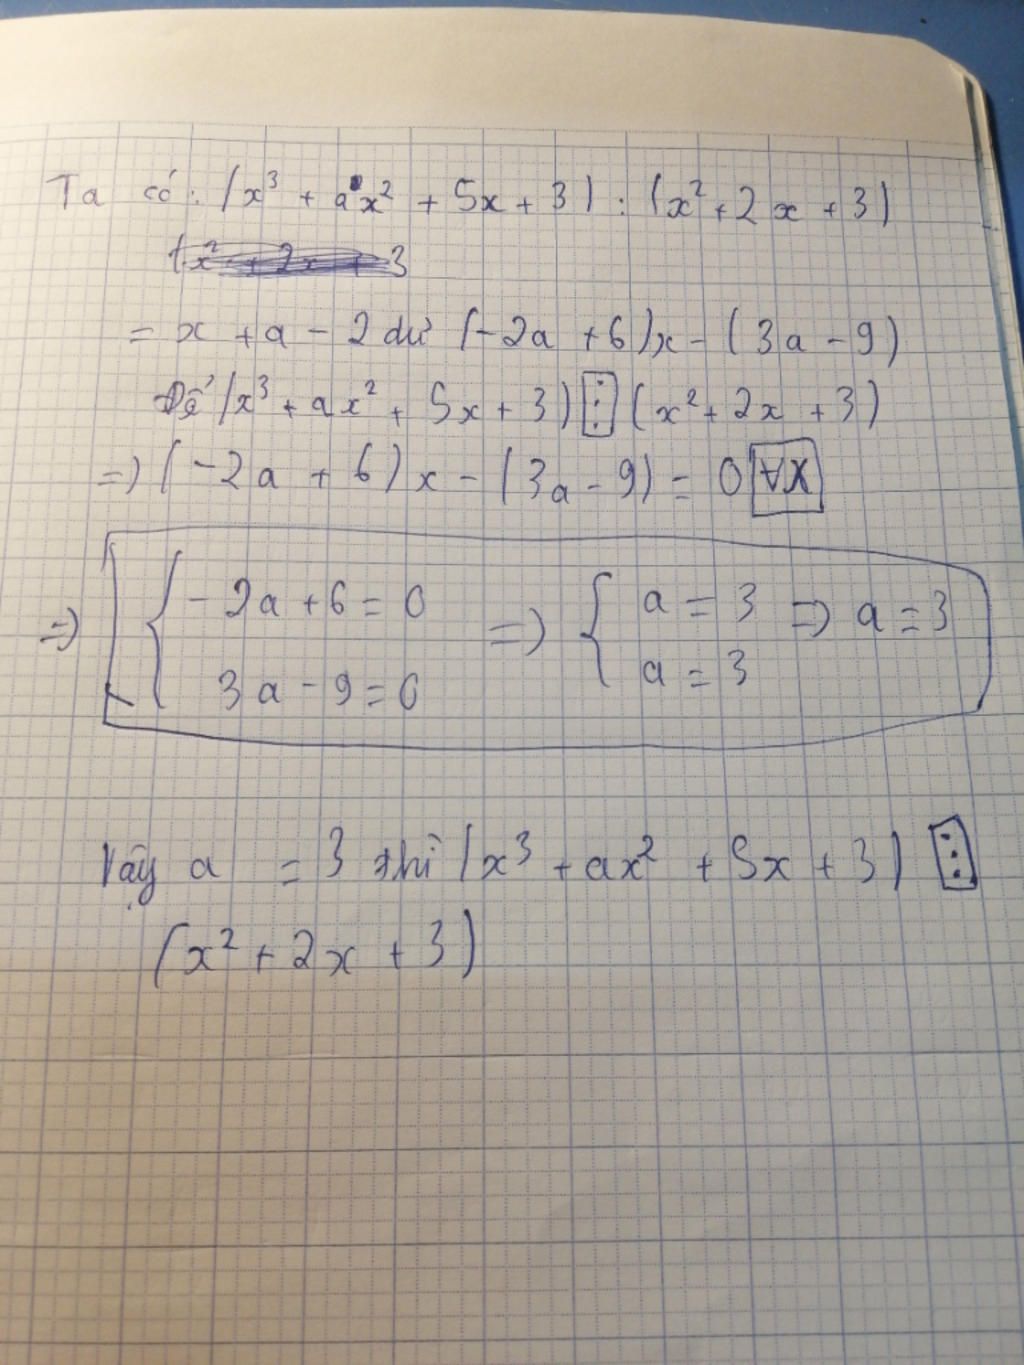 Ta có: (x³ + ax² + 5x + 3) : (x² + 2x + 3)
(x² + 2x + 3
= x + a - 2 dư (-2a + 6)x - (3a - 9)
Để (x³ + ax² + 5x + 3) ⋮ (x² + 2x + 3)
=> (-2a + 6)x - (3a - 9) = 0 ∀x
=> { -2a + 6 = 0 => { a = 3 => a = 3
3a - 9 = 0 a = 3
Vậy a = 3 thì (x³ + ax² + 5x + 3) ⋮
(x² + 2x + 3)